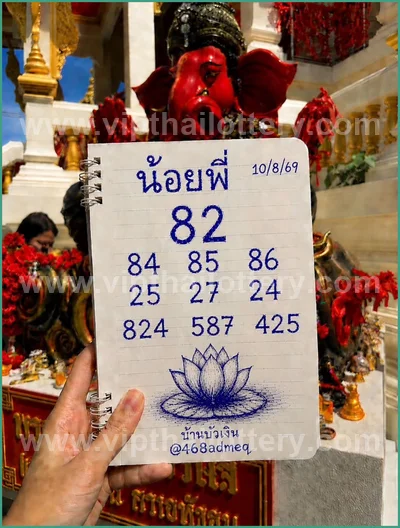 www.vipthailottery.com
น้อยพี่ 10/8/69
82
84 85 86
www.vipthailottery.com
25 27 24
824 587 425
บ้านบัวเงิน
www.vipthailottery.com
@468admeq